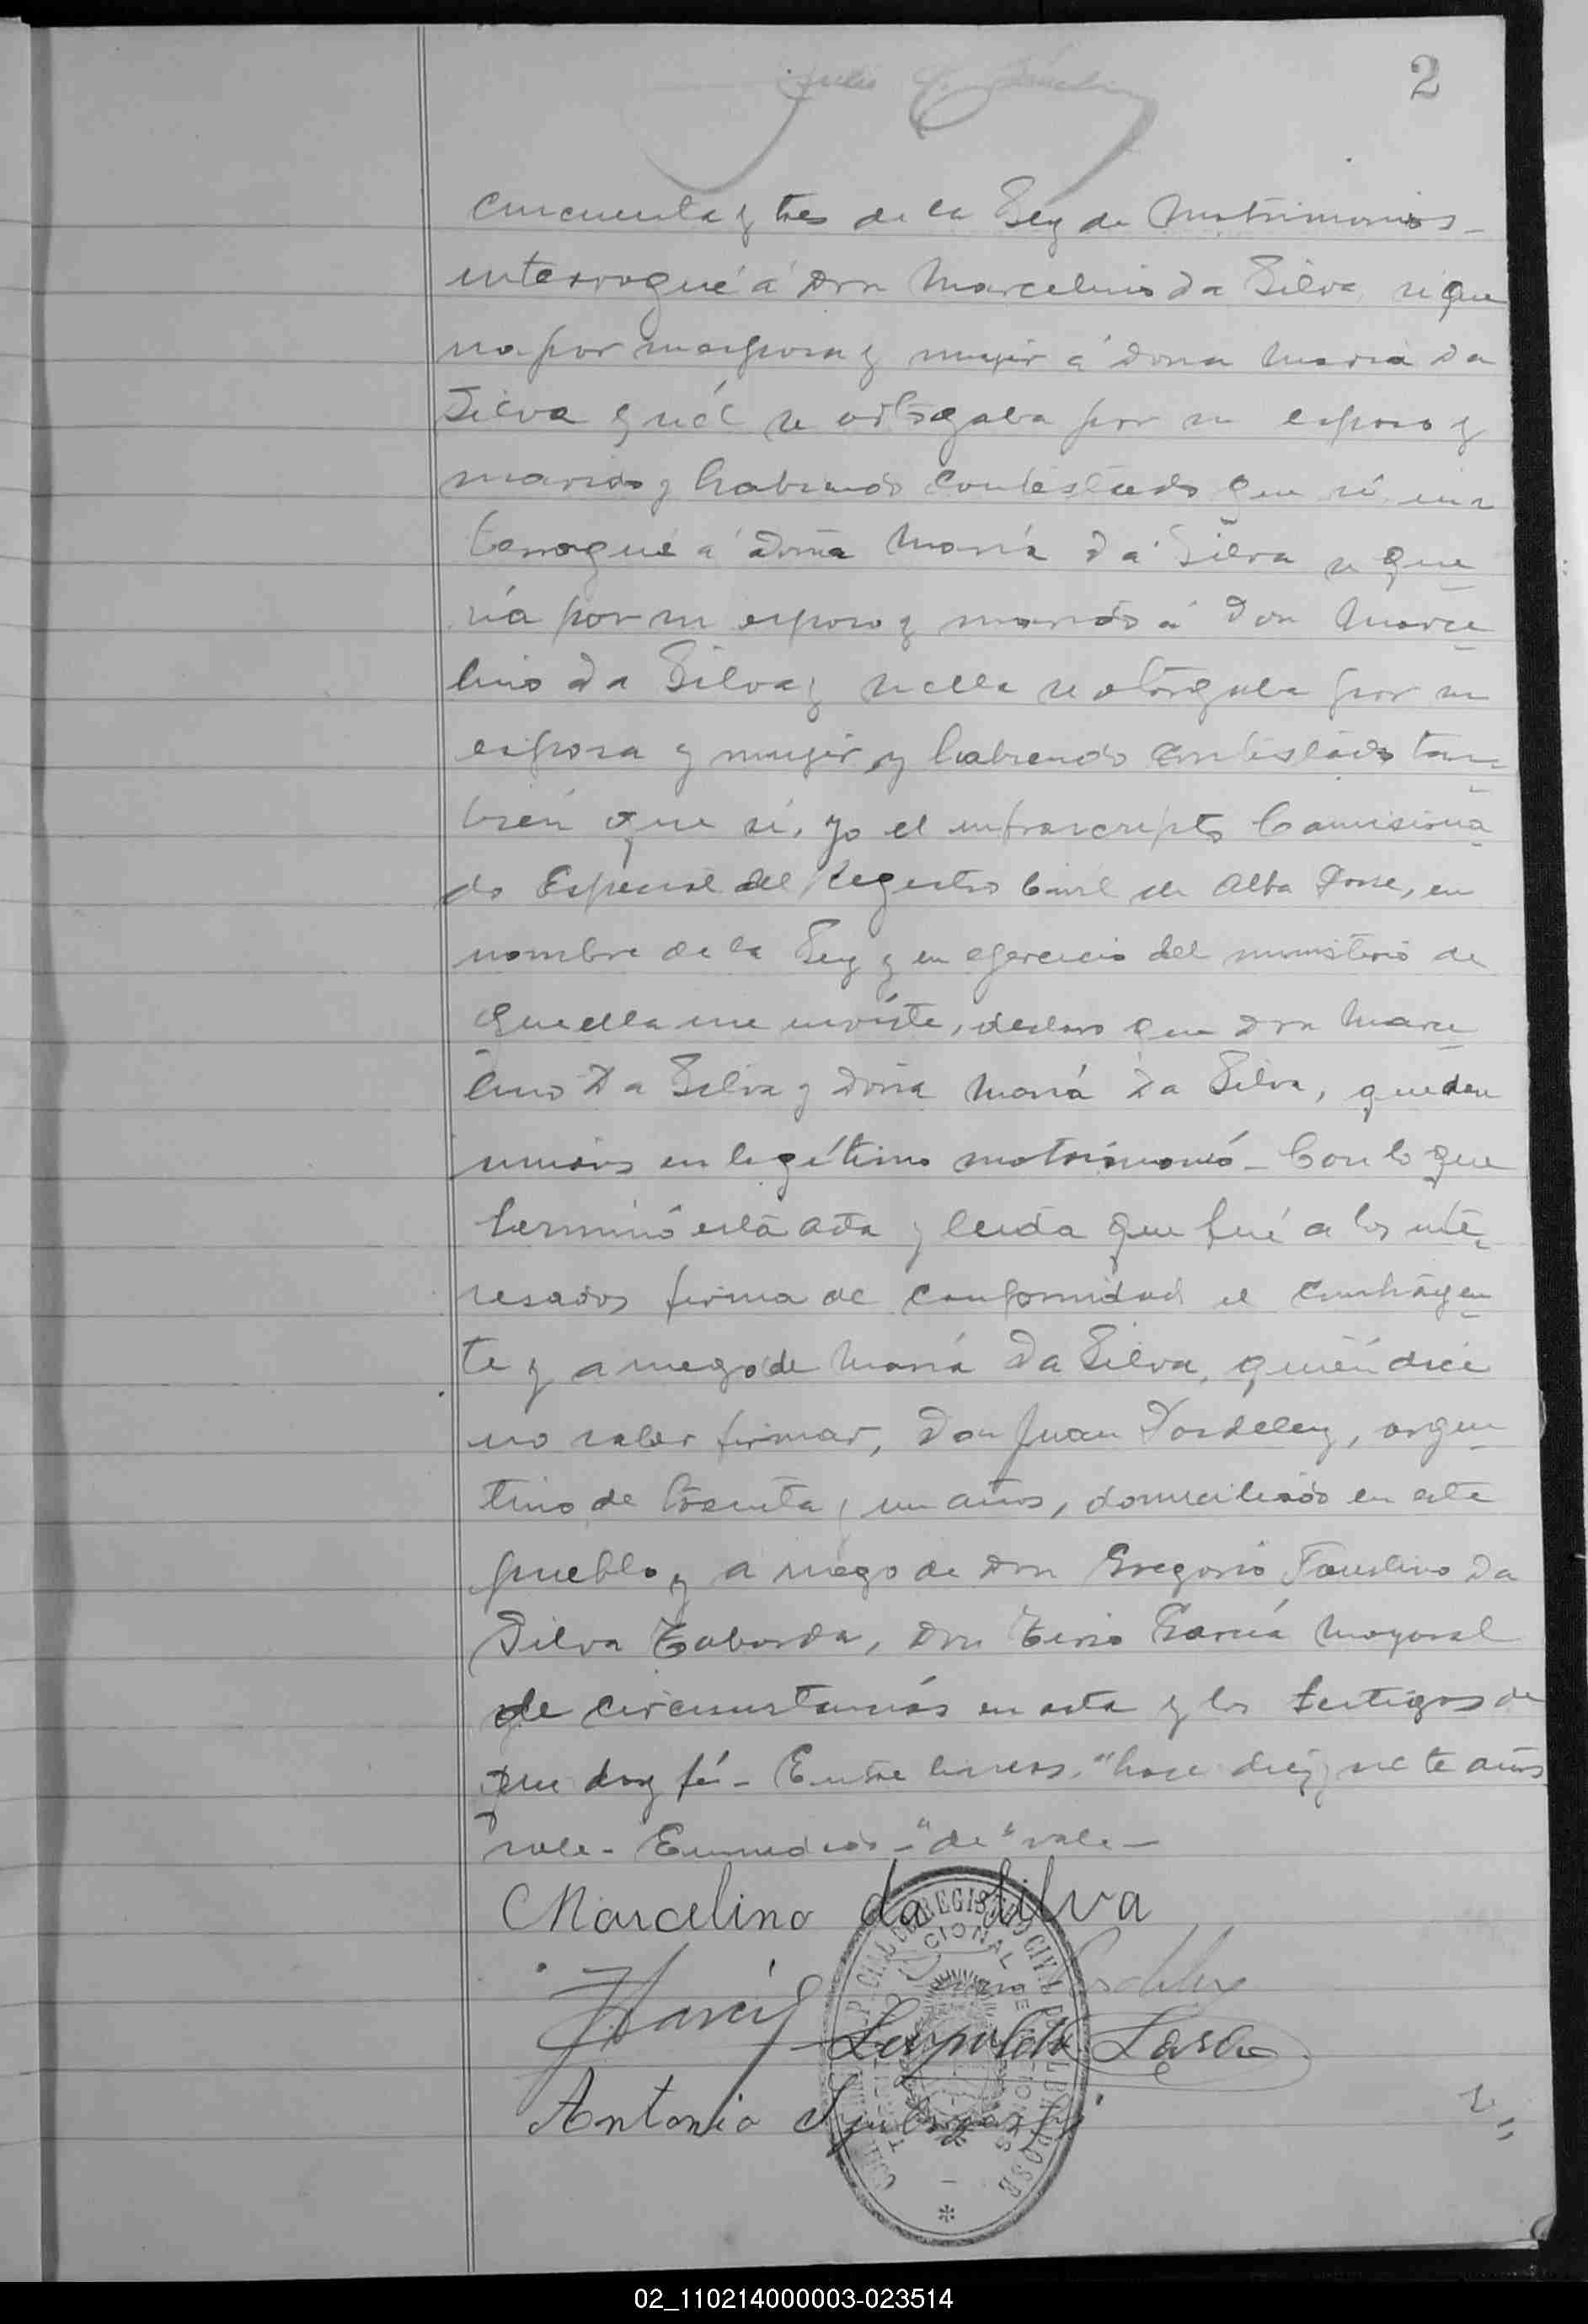 2
cincuenta y tres de la Ley de Matrimonios_
interrogué á Don Marcelino da Silva si que
ria por su esposa y mujer á doña María da
Silva y si él se otorgaba por su esposo y
marido y habiendo contestado que sí in
terrogué a doña María da Silva si que
ría por su esposo y marido á Don Marce
lino da Silva y si ella se otorgaba por su
esposa y mujer y habiendo contestado tam
bién que sí, yo el infrascripto Comisiona
do Especial del Registro Civil de Alba Posse, en
nombre de la Ley y en ejercicio del ministerio de
que ella me inviste, declaro que Don Marce
lino Da Silva y Doña María Da Silva, quedan
unidos en legítimo matrimonio_ Con lo que
terminó esta acta y leida que fué a los inte
resados firma de conformidad el contrayen
te y a ruego de María Da Silva, quién dice
no saber firmar, Don Juan Dordeley, argen
tino de treinta y un años, domiciliado en este
pueblo y a ruego de Don Gregorio Faustino Da
Silva Taborda, Don Garcia Mayoral
de circunstancias en esta y los testigos de
que doy fé_ Entre lineas "hace diez y siete años
vale_ Enmedado_ "de" vale_
Marcelino da Silva
Leopoldo
Antonio
REGISTRO CIVIL
02_110214000003-023514